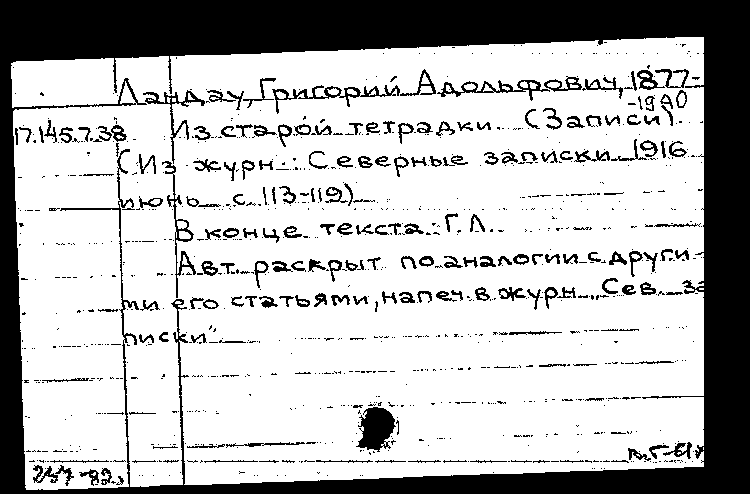 Ландау, Григорий Адольфович, 1877-
-1940
17.145.7.38 Из старой тетрадки. (Записи).
(Из журн.: Северные записки. 1916
июнь с. 113-119)
В конце текста: Г.Л.
Авт. раскрыт по аналогии с други-
ми его статьями, напеч. в журн. „Сев. за
писки".